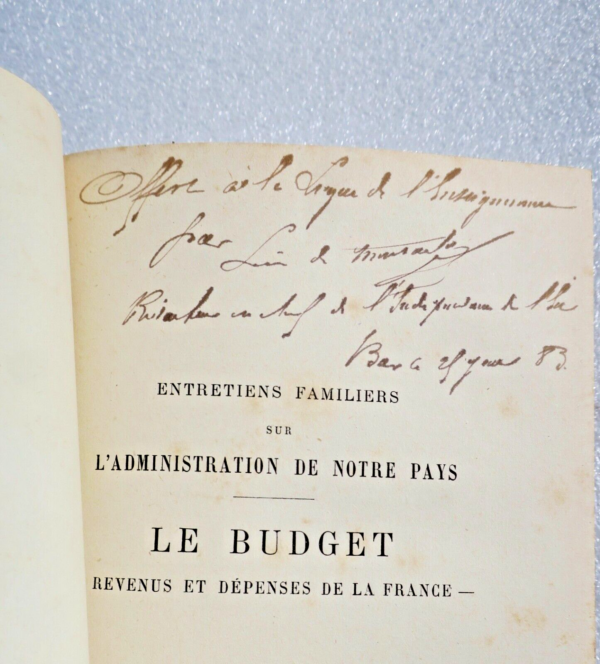 Offert à la Ligue de l'Enseignement
par
de
Rédacteur en chef de l'Indépendance de l'Est
Bar le 25 83.
ENTRETIENS FAMILIERS
SUR
L'ADMINISTRATION DE NOTRE PAYS
LE BUDGET
REVENUS ET DÉPENSES DE LA FRANCE —